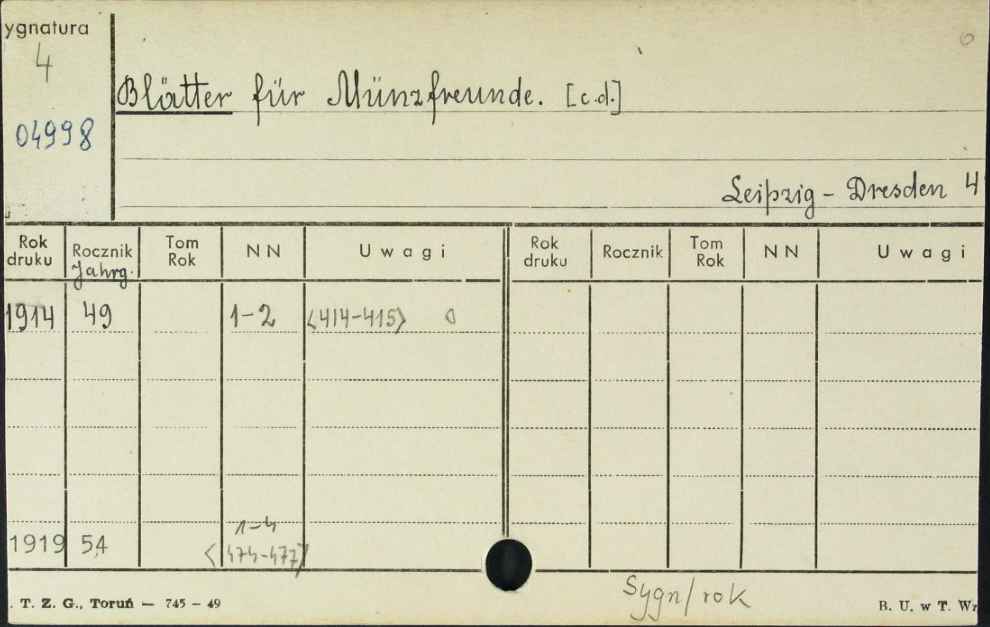 ygnatura
4
04998
Blätter für Münzfreunde. [c.d.]
Leipzig - Dresden 4
Rok druku Rocznik Jahrg. Tom Rok NN Uwagi Rok druku Rocznik Tom Rok NN Uwagi
1914 49 1-2 <414-415> 0
1-4
1919 54 <474-477>
Sygn/rok
. T. Z. G., Toruń — 745 - 49 B. U. w T. Wr